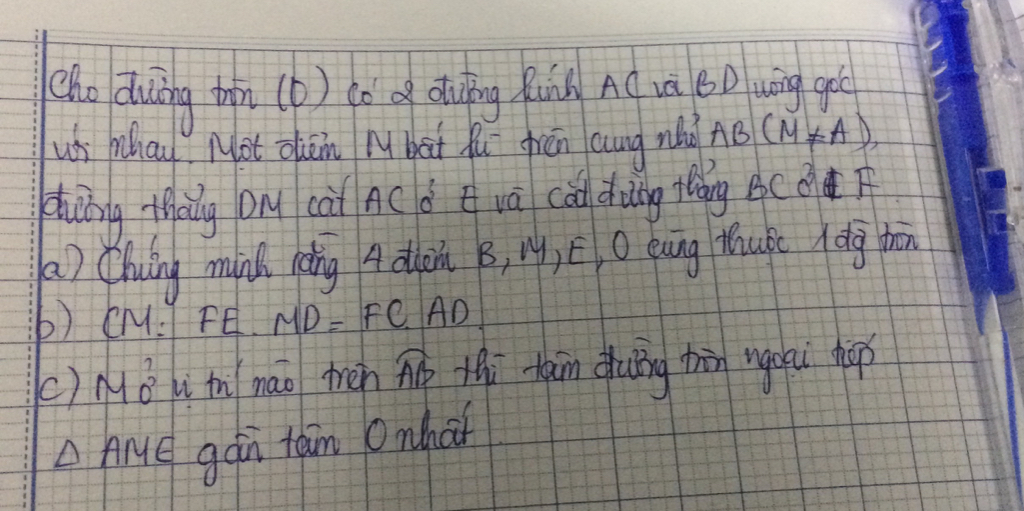 Cho đường tròn (O) có 2 đường kính AC và BD vuông góc
với nhau. Một điểm M bất kì trên cung nhỏ AB (M ≠ A),
đường thẳng DM cắt AC ở E và cắt đường thẳng BC ở F
a) Chứng minh rằng 4 điểm B, M, E, O cùng thuộc 1 đg tròn
b) CM: FE. MD = FC. AD
c) M ở vị trí nào trên AB thì tâm đường tròn ngoại tiếp
Δ AME gần tâm O nhất